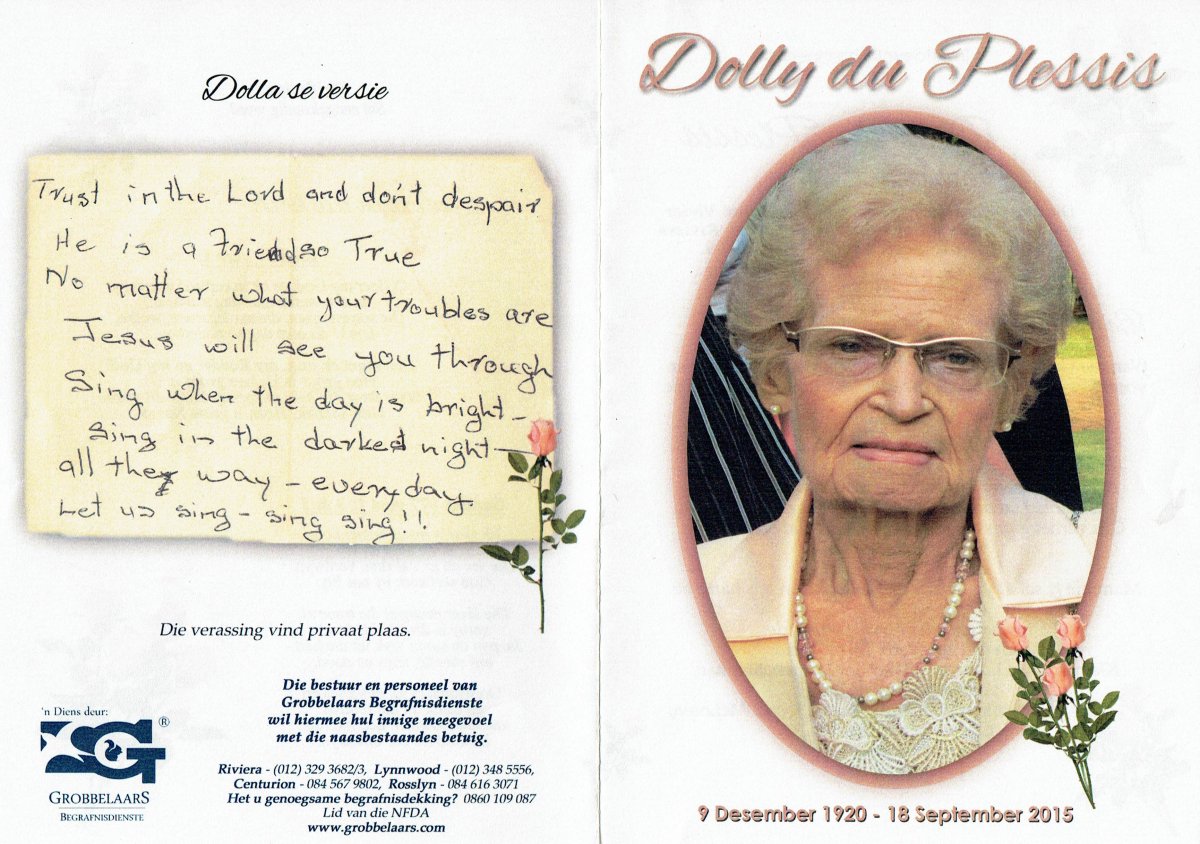 Dolla se versie
Trust in the Lord and don't despair
He is a Friend so True
No matter what your troubles are
Jesus will see you through
Sing when the day is bright -
Sing in the darkest night -
all they way - everyday
Let us sing - sing sing!!
Die verassing vind privaat plaas.
'n Diens deur:
®
GROBBELAARS
BEGRAFNISDIENSTE
Die bestuur en personeel van
Grobbelaars Begrafnisdienste
wil hiermee hul innige meegevoel
met die naasbestaandes betuig.
Riviera - (012) 329 3682/3, Lynnwood - (012) 348 5556,
Centurion - 084 567 9802, Rosslyn - 084 616 3071
Het u genoegsame begrafnisdekking? 0860 109 087
Lid van die NFDA
www.grobbelaars.com
Dolly du Plessis
9 Desember 1920 - 18 September 2015